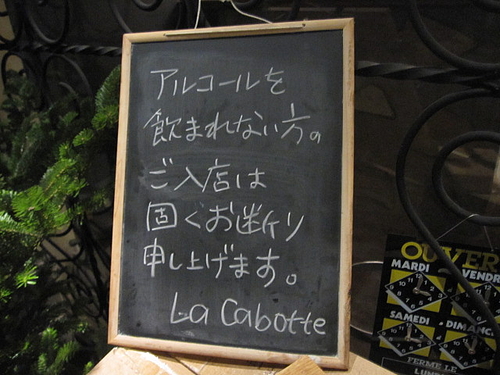 アルコールを
飲まれない方の
ご入店は
固くお断り
申し上げます。
La Cabotte
OUVER
MARDI
VENDR
SAMEDI
DIMANC
FERME LE
LUN